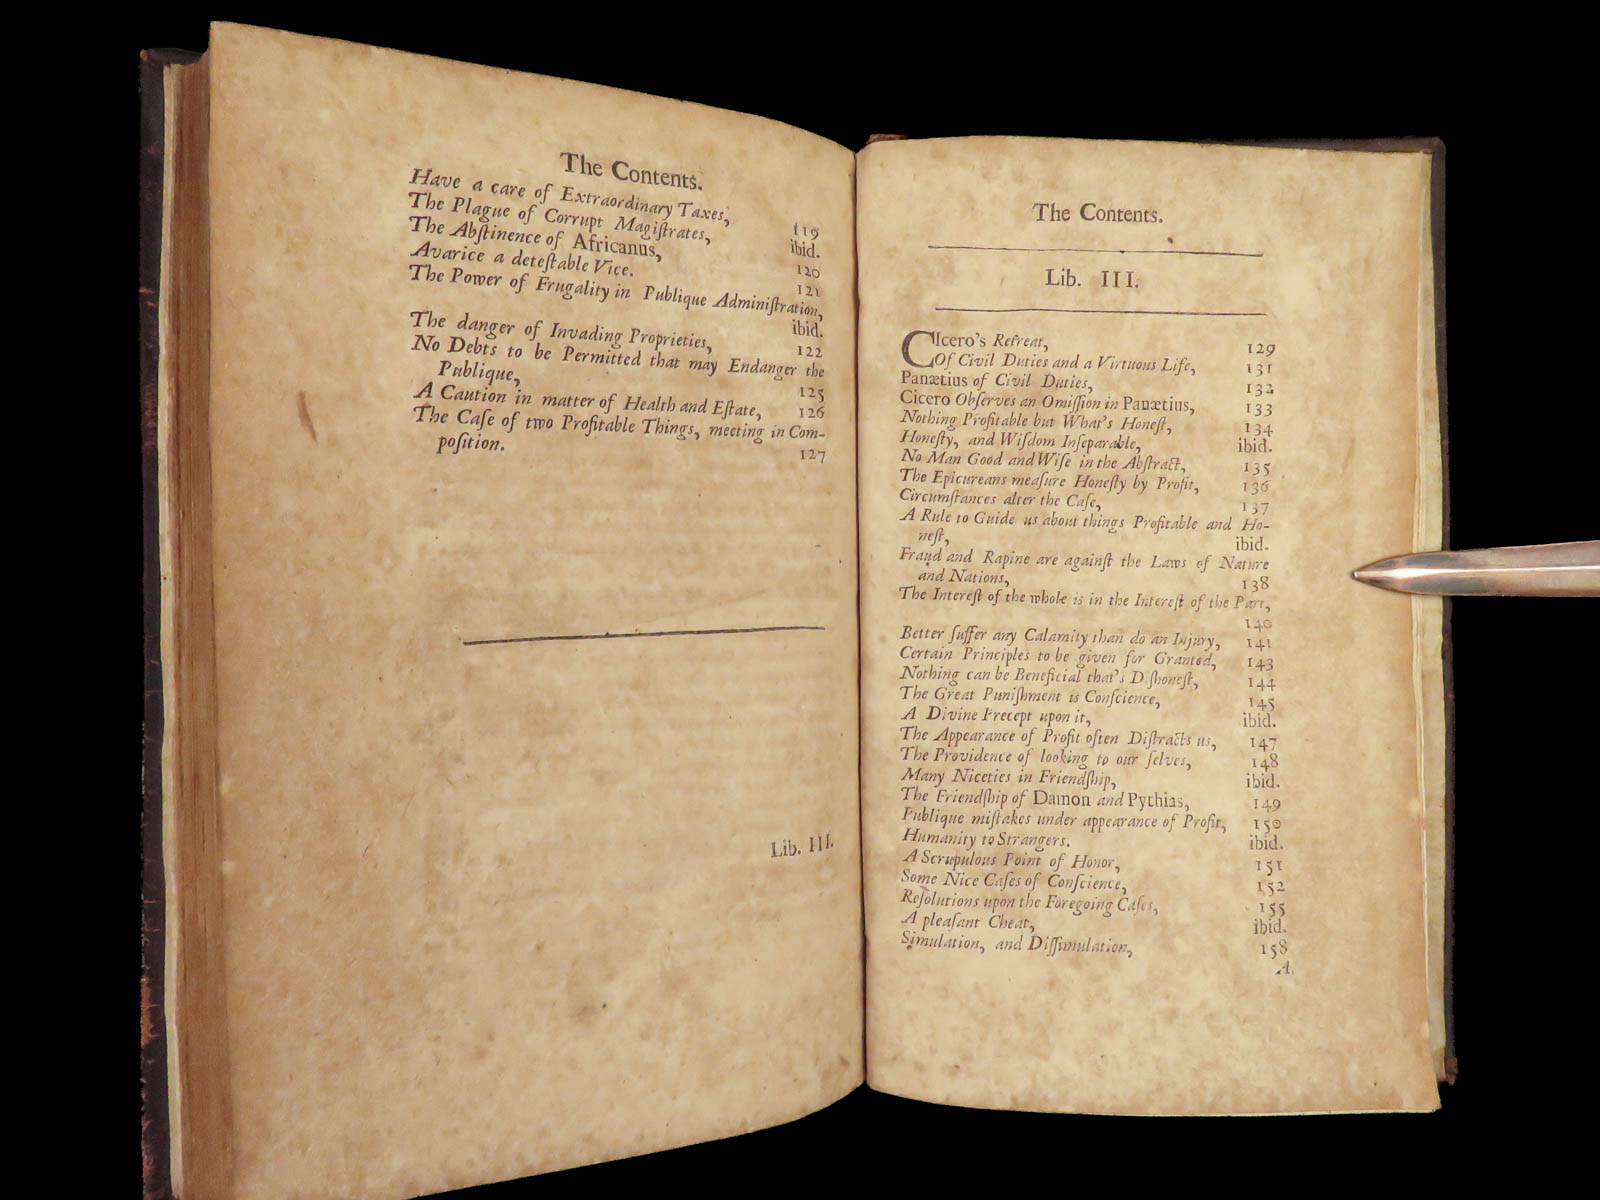 The Contents.
Have a care of Extraordinary Taxes, 119
The Plague of Corrupt Magiſtrates, ibid.
The Abſtinence of Africanus, 120
Avarice a deteſtable Vice. 121
The Power of Frugality in Publique Adminiſtration,
ibid.
The danger of Invading Proprieties, 122
No Debts to be Permitted that may Endanger the
Publique, 125
A Caution in matter of Health and Eſtate, 126
The Caſe of two Profitable Things, meeting in Com-
poſition. 127
Lib. III.
The Contents.
Lib. III.
CIcero's Retreat, 129
Of Civil Duties and a Virtuous Life, 131
Panætius of Civil Duties, 132
Cicero Obſerves an Omiſſion in Panætius, 133
Nothing Profitable but What's Honeſt, 134
Honeſty, and Wiſdom Inſeparable, ibid.
No Man Good and Wiſe in the Abſtract, 135
The Epicureans meaſure Honeſty by Profit, 136
Circumſtances alter the Caſe, 137
A Rule to Guide us about things Profitable and Ho-
neſt, ibid.
Fraud and Rapine are againſt the Laws of Nature
and Nations, 138
The Intereſt of the whole is in the Intereſt of the Part,
140
Better ſuffer any Calamity than do an Injury, 141
Certain Principles to be given for Granted, 143
Nothing can be Beneficial that's Diſhoneſt, 144
The Great Puniſhment is Conſcience, 145
A Divine Precept upon it, ibid.
The Appearance of Profit often Diſtracts us, 147
The Providence of looking to our ſelves, 148
Many Niceties in Friendſhip, ibid.
The Friendſhip of Damon and Pythias, 149
Publique miſtakes under appearance of Profit, 150
Humanity to Strangers. ibid.
A Scrupulous Point of Honor, 151
Some Nice Caſes of Conſcience, 152
Reſolutions upon the Foregoing Caſes, 155
A pleaſant Cheat, ibid.
Simulation, and Diſſimulation, 158
A